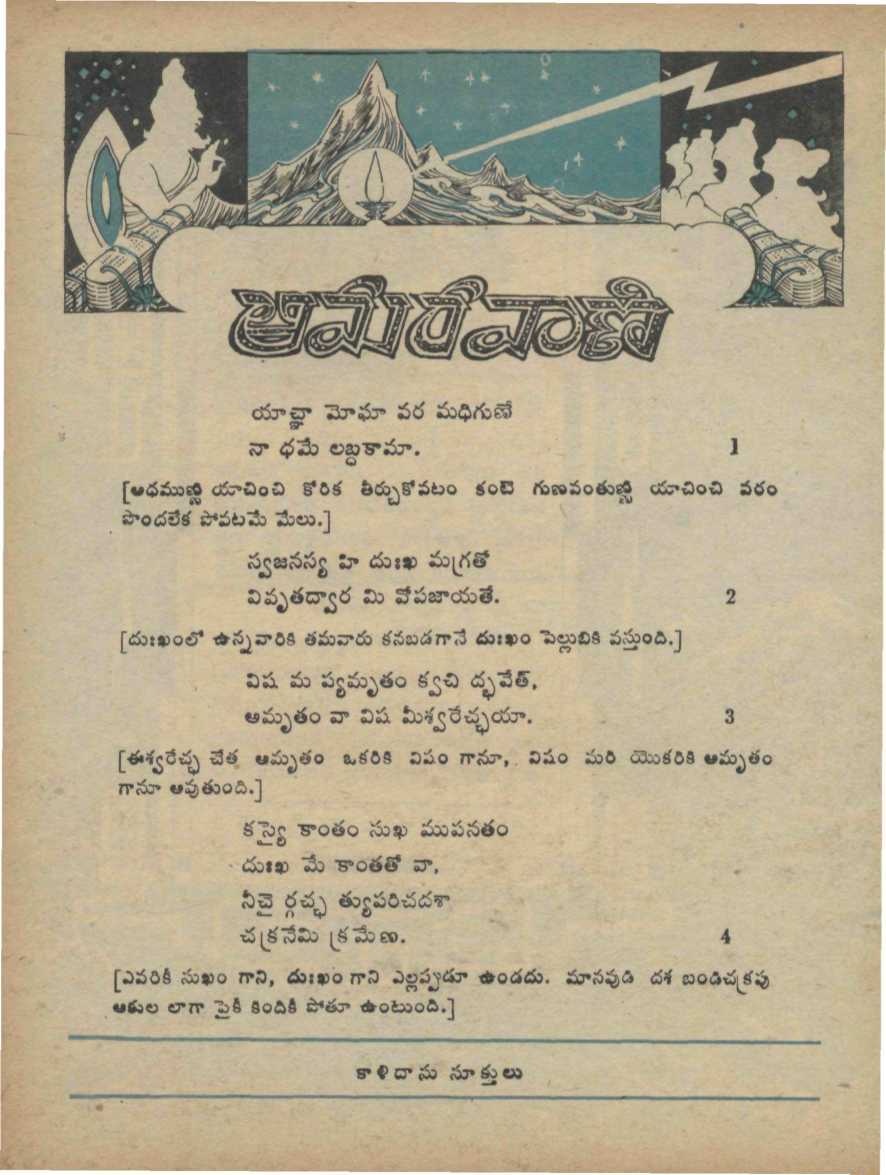 అమరవాణి
యాచ్ఞా మోఘా వర మధిగుణే
నా ధమే లబ్ధకామా. 1
[అధముణ్ణి యాచించి కోరిక తీర్చుకోవటం కంటె గుణవంతుణ్ణి యాచించి వరం
పొందలేక పోవటమే మేలు.]
స్వజనస్య హి దుఃఖ మగ్రతో
వివృతద్వార మి వోపజాయతే. 2
[దుఃఖంలో ఉన్నవారికి తమవారు కనబడగానే దుఃఖం పెల్లుబికి వస్తుంది.]
విష మ ప్యమృతం క్వచి ద్భవేత్,
అమృతం వా విష మీశ్వరేచ్ఛయా. 3
[ఈశ్వరేచ్ఛ చేత అమృతం ఒకరికి విషం గానూ, విషం మరి యొకరికి అమృతం
గానూ అవుతుంది.]
కస్యై కాంతం సుఖ ముపనతం
దుఃఖ మే కాంతతో వా,
నీచై ర్గచ్ఛ త్యుపరిచదశా
చక్రనేమి క్రమేణ. 4
[ఎవరికీ సుఖం గాని, దుఃఖం గాని ఎల్లప్పుడూ ఉండదు. మానవుడి దశ బండిచక్రపు
ఆకుల లాగా పైకీ కిందికీ పోతూ ఉంటుంది.]
కాళిదాసు సూక్తులు